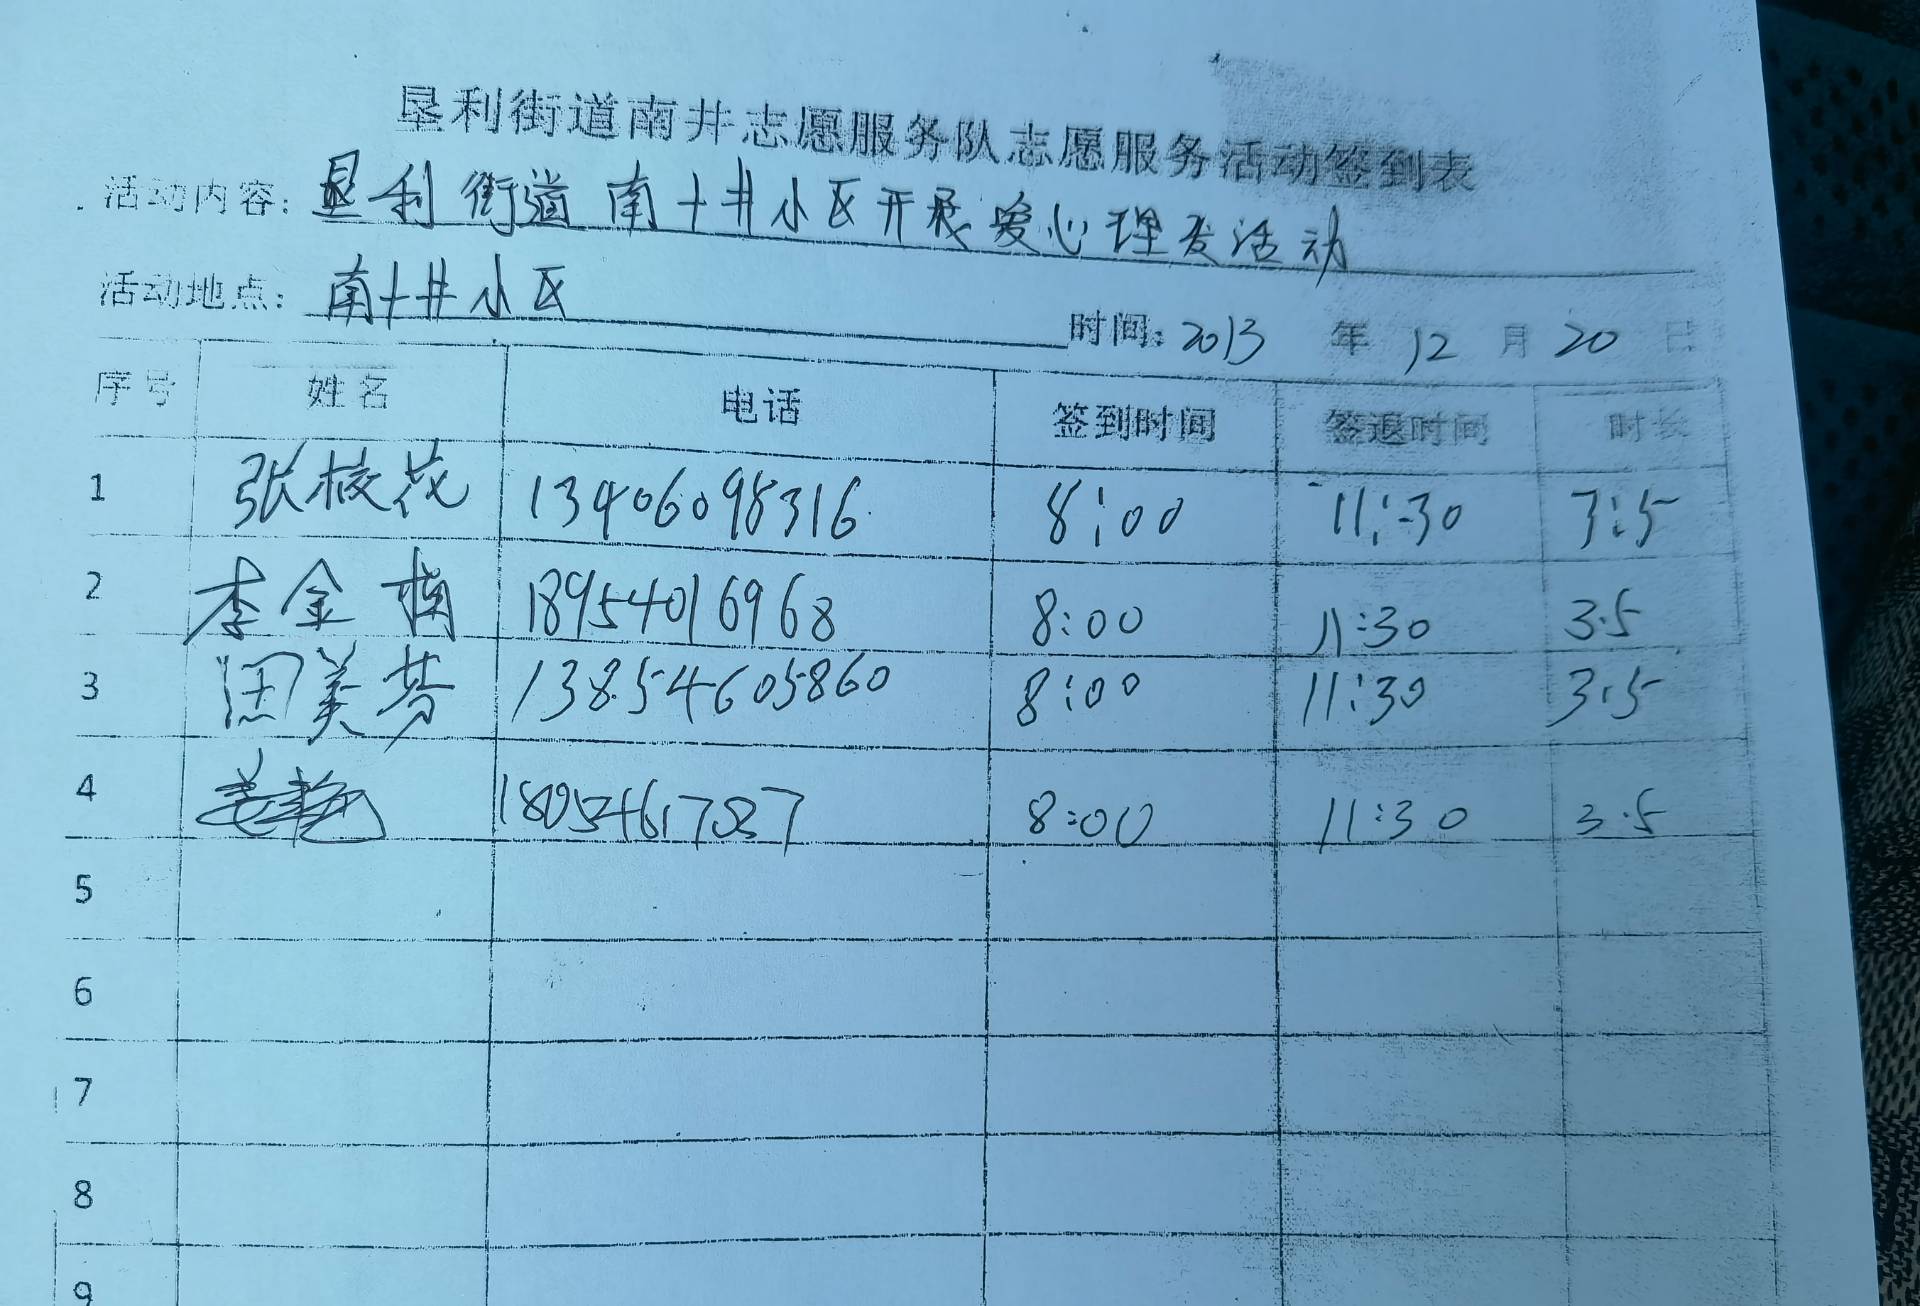 垦利街道南井志愿服务队志愿服务活动签到表
活动内容: 垦利街道南十井小区开展爱心理发活动
活动地点: 南十井小区 时间: 2013 年 12 月 20 日
序号 姓名 电话 签到时间 签退时间 时长
1 张校花 13406098316 8:00 11:30 3:5
2 李金楠 18954016968 8:00 11:30 3.5
3 美芬 13854605860 8:00 11:30 3.5
4 姜艳 8:00 11:30 3.5
5
6
7
8
9